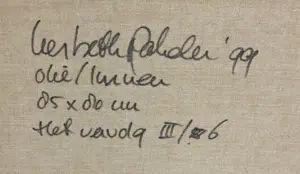 Liesbeth Pahder '99
olie/linnen
85 x 80 cm
Het vandq III/6